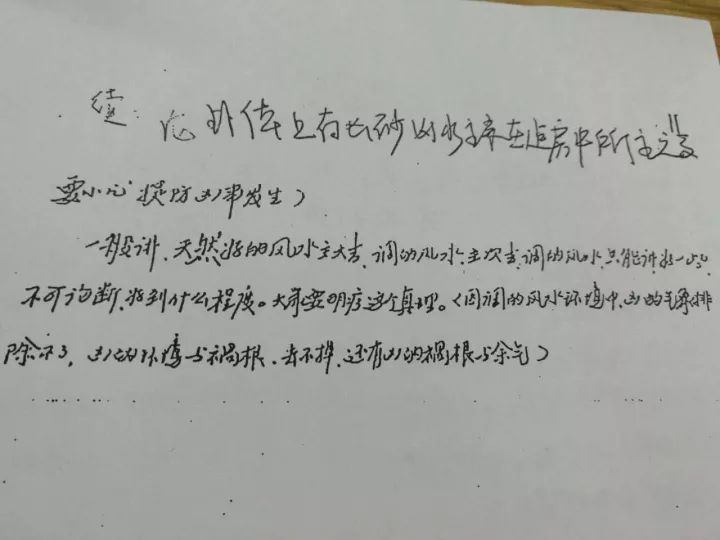 续: 忆外传上有长砂凶水主客在连房中所主之"
要小心提防凶事发生)
一般讲,天然好的风水主大吉,调的风水主次吉,调的风水只能讲好一些,
不可论断,好到什么程度。大家要明症这个真理。(因调的风水环境中,凶的气排
除不了,凶的环境与祸根,去不掉,还有凶的祸根与余气)